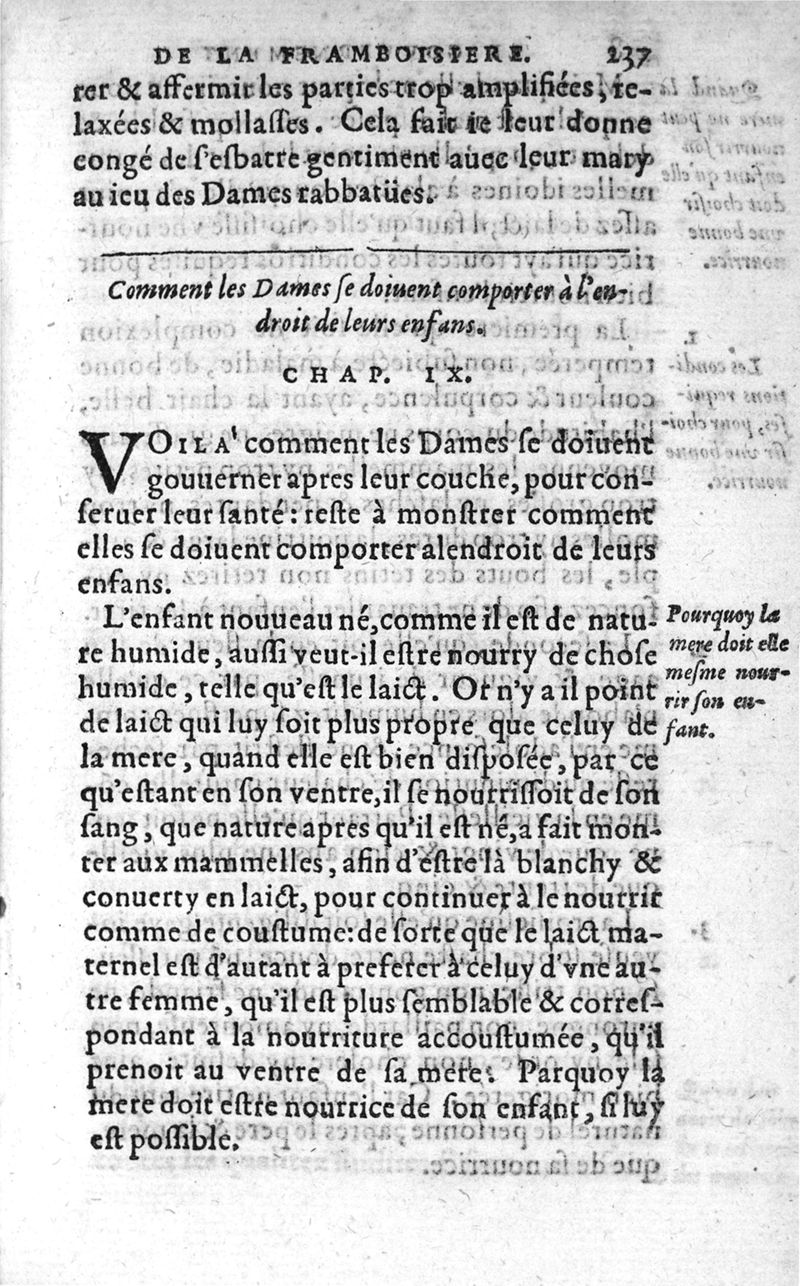 DE LA FRAMBOISIERE. 237
rer & affermir les parties trop amplifiées, re-
laxées & mollasses. Cela fait ie leur donne
congé de s'esbatre gentiment auec leur mary
au ieu des Dames rabbatües.
Comment les Dames se doiuent comporter à l'en-
droit de leurs enfans.
CHAP. IX.
VOILA' comment les Dames se doiuent
gouuerner apres leur couche, pour con-
seruer leur santé: reste à monstrer comment
elles se doiuent comporter alendroit de leurs
enfans.
L'enfant nouueau né, comme il est de natu-
re humide, aussi veut-il estre nourry de chose
humide, telle qu'est le laict. Or n'y a il point
de laict qui luy soit plus propre que celuy de
la mere, quand elle est bien disposée, par ce
qu'estant en son ventre, il se nourrissoit de son
sang, que nature apres qu'il est né, a fait mon-
ter aux mammelles, afin d'estre là blanchy &
conuerty en laict, pour continuer à le nourrir
comme de coustume: de sorte que le laict ma-
ternel est d'autant à preferer à celuy d'vne au-
tre femme, qu'il est plus semblable & corres-
pondant à la nourriture accoustumée, qu'il
prenoit au ventre de sa mere. Parquoy la
mere doit estre nourrice de son enfant, si luy
est possible.
Pourquoy la
mere doit elle
mesme nour-
rir son en-
fant.